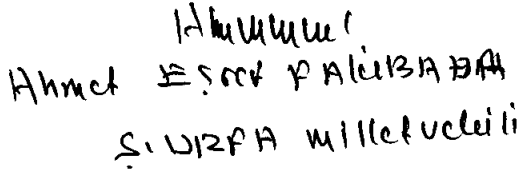 Ahmet EŞref FAKıBABA
Ş.URFA Milletvekili